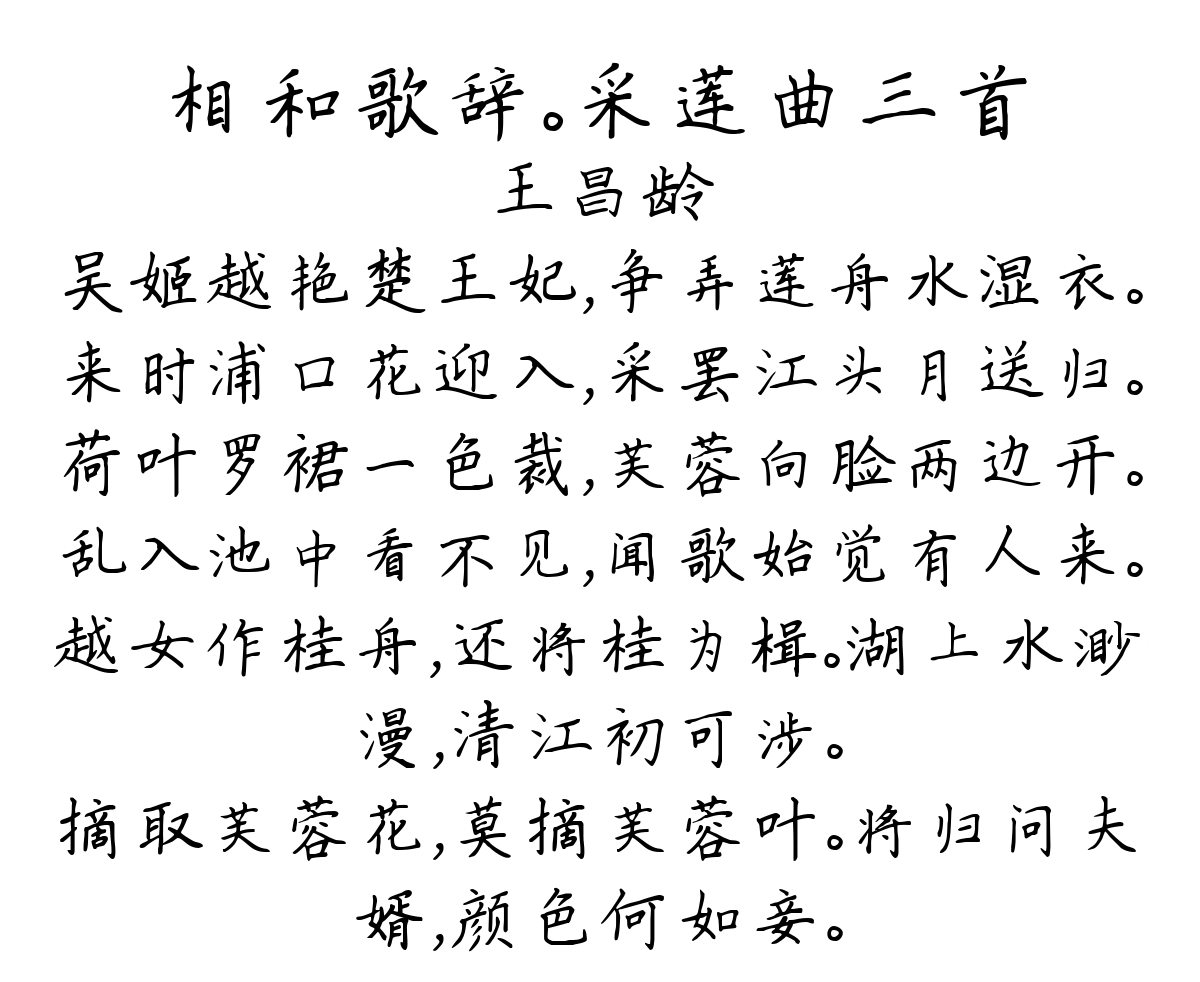 相和歌辞。采莲曲三首
王昌龄
吴姬越艳楚王妃,争弄莲舟水湿衣。
来时浦口花迎入,采罢江头月送归。
荷叶罗裙一色裁,芙蓉向脸两边开。
乱入池中看不见,闻歌始觉有人来。
越女作桂舟,还将桂为楫。湖上水渺
漫,清江初可涉。
摘取芙蓉花,莫摘芙蓉叶。将归问夫
婿,颜色何如妾。